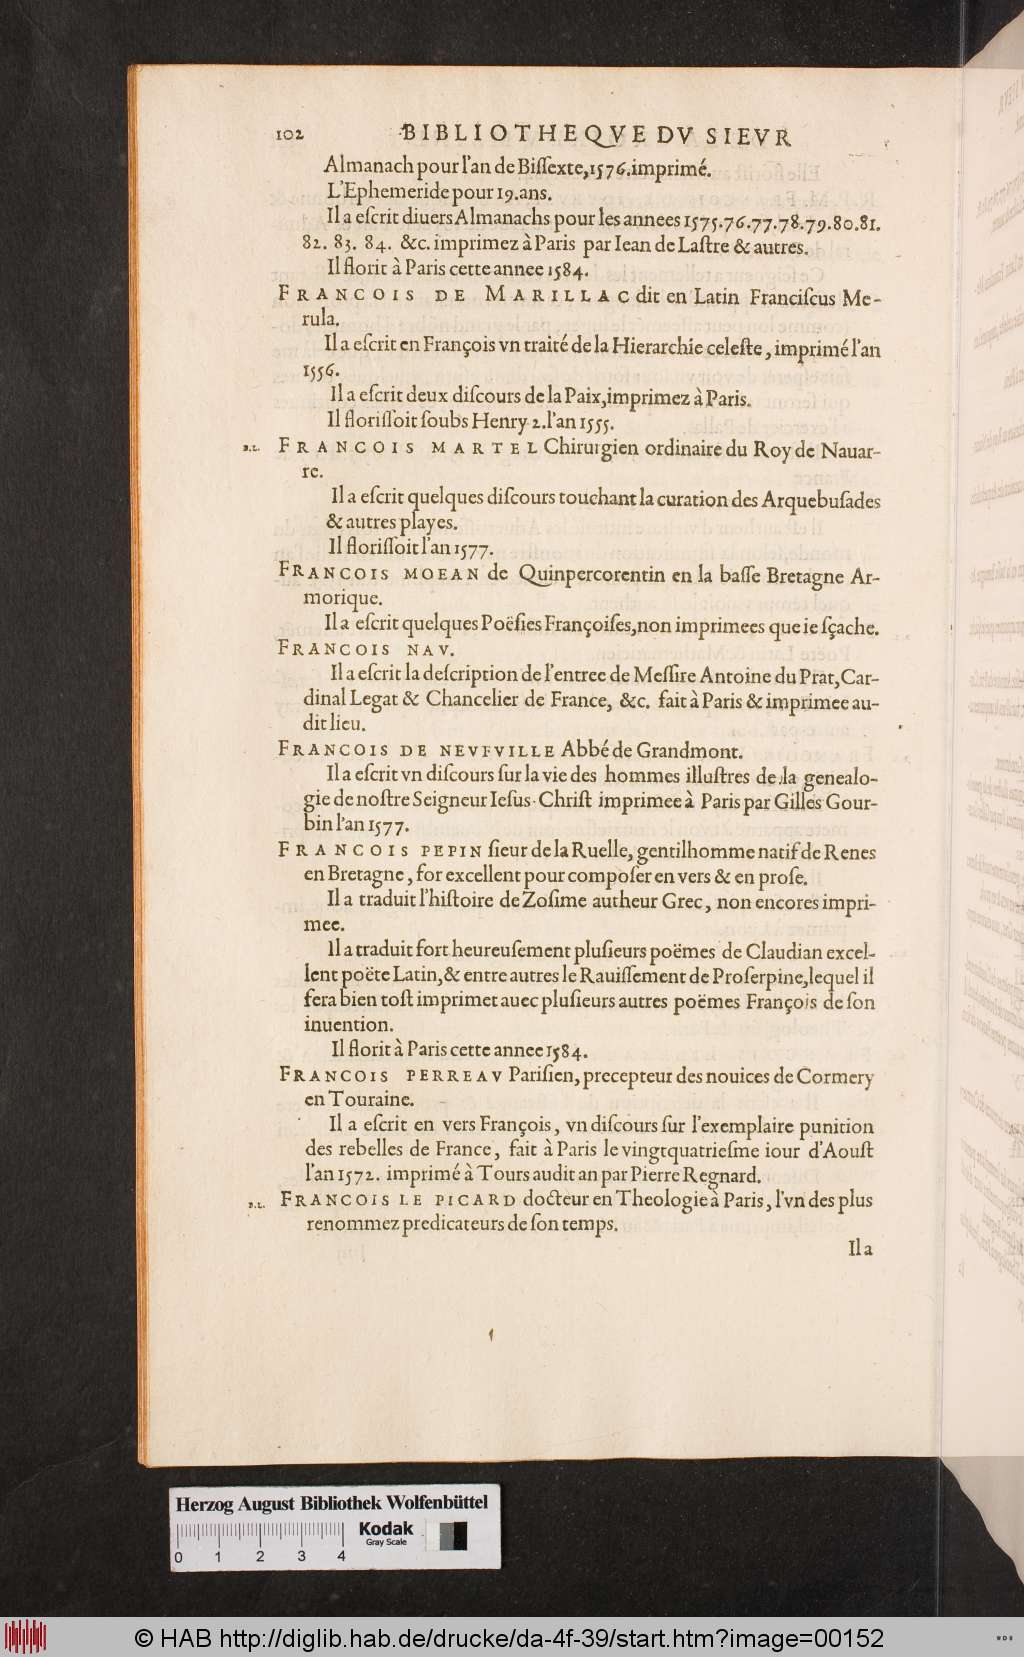 102 BIBLIOTHEQVE DV SIEVR
Almanach pour l'an de Biſſexte, 1576. imprimé.
L'Ephemeride pour 19. ans.
Il a eſcrit diuers Almanachs pour les annees 1575. 76. 77. 78. 79. 80. 81.
82. 83. 84. &c. imprimez à Paris par Iean de Laſtre & autres.
Il florit à Paris cette annee 1584.
FRANCOIS DE MARILLAC dit en Latin Franciſcus Me-
rula.
Il a eſcrit en François vn traité de la Hierarchie celeſte, imprimé l'an
1556.
Il a eſcrit deux diſcours de la Paix, imprimez à Paris.
Il floriſſoit ſoubs Henry 2. l'an 1555.
B.L. FRANCOIS MARTEL Chirurgien ordinaire du Roy de Nauar-
re.
Il a eſcrit quelques diſcours touchant la curation des Arquebuſades
& autres playes.
Il floriſſoit l'an 1577.
FRANCOIS MOEAN de Quinpercorentin en la baſſe Bretagne Ar-
morique.
Il a eſcrit quelques Poëſies Françoiſes, non imprimees que ie ſçache.
FRANCOIS NAV.
Il a eſcrit la deſcription de l'entree de Meſſire Antoine du Prat, Car-
dinal Legat & Chancelier de France, &c. fait à Paris & imprimee au-
dit lieu.
FRANCOIS DE NEVFVILLE Abbé de Grandmont.
Il a eſcrit vn diſcours ſur la vie des hommes illuſtres de la genealo-
gie de noſtre Seigneur Ieſus-Chriſt imprimee à Paris par Gilles Gour-
bin l'an 1577.
FRANCOIS PEPIN ſieur de la Ruelle, gentilhomme natif de Renes
en Bretagne, for excellent pour compoſer en vers & en proſe.
Il a traduit l'hiſtoire de Zoſime autheur Grec, non encores impri-
mee.
Il a traduit fort heureuſement pluſieurs poëmes de Claudian excel-
lent poëte Latin, & entre autres le Rauiſſement de Proſerpine, lequel il
fera bien toſt imprimer auec pluſieurs autres poëmes François de ſon
inuention.
Il florit à Paris cette annee 1584.
FRANCOIS PERREAV Pariſien, precepteur des nouices de Cormery
en Touraine.
Il a eſcrit en vers François, vn diſcours ſur l'exemplaire punition
des rebelles de France, fait à Paris le vingtquatrieſme iour d'Aouſt
l'an 1572. imprimé à Tours audit an par Pierre Regnard.
B.L. FRANCOIS LE PICARD docteur en Theologie à Paris, l'vn des plus
renommez predicateurs de ſon temps.
Il a
Herzog August Bibliothek Wolfenbüttel
Kodak
Gray Scale
0 1 2 3 4
© HAB http://diglib.hab.de/drucke/da-4f-39/start.htm?image=00152